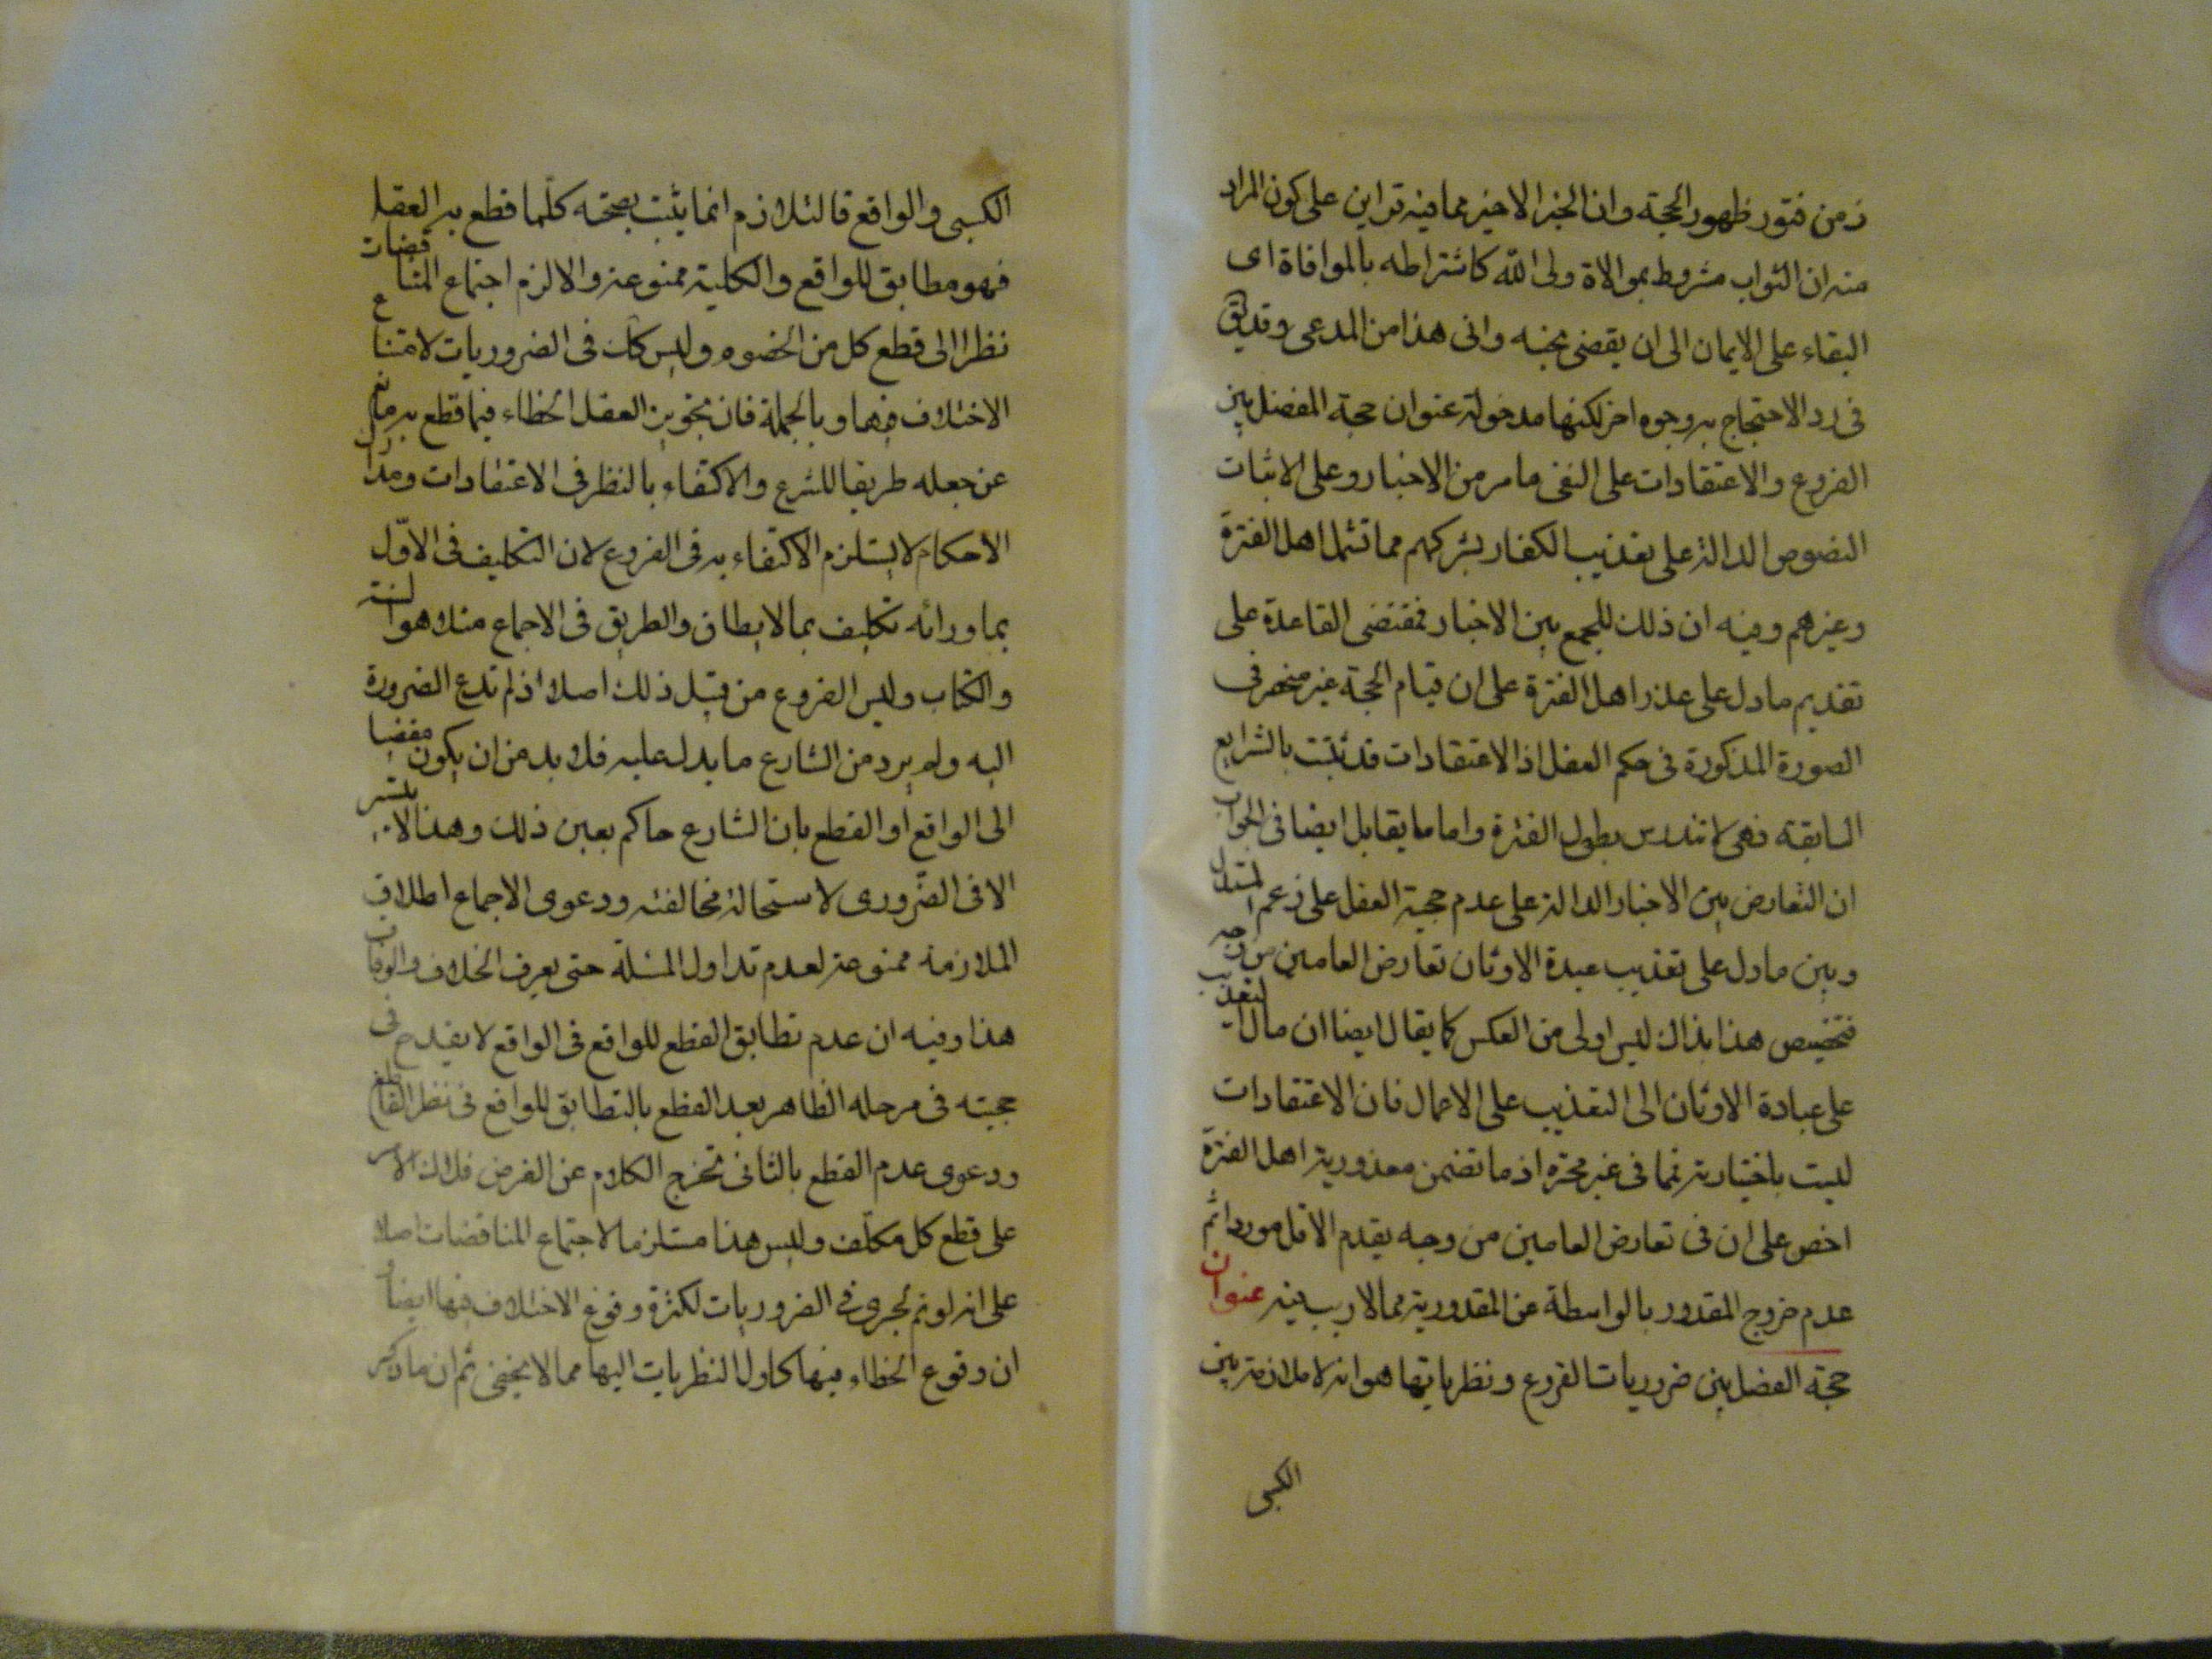 زمن فتور ظهور الحجة وان الخبر الاخير مما فيه قراين على كون المراد
منه ان الثواب مشروط بموالاة ولى الله كاشتراطه بالموافاة اى
البقاء على الايمان الى ان يقضى نحبه وانى هذا من المدعى وقد يق
فى رد الاحتجاج به وجوه اخر لكنها مدخولة عنوان حجة المفصل بين
الفروع والاعتقادات على النفى ما مر من الاخبار وعلى الاثبات
النصوص الدالة على تعذيب الكفار بشركهم مما تشمل اهل الفترة
وغيرهم وفيه ان ذلك للجمع بين الاخبار فمقتضى القاعدة على
تقديم ما دل على عذر اهل الفترة على ان قيام الحجة غير منحصر فى
الصورة المذكورة فى حكم العقل اذ الاعتقادات قد تثبت بالشرايع
السابقة فهى لا تندرس بطول الفترة واما ما يقابل ايضا فى الجواب
ان التعارض بين الاخبار الدالة على عدم حجية العقل على زعم المستدل
وبين ما دل على تعذيب عبدة الاوثان تعارض العامين من وجه
فتخصيص هذا بذاك ليس اولى من العكس كما يقال ايضا ان مآل التعذيب
على عبادة الاوثان الى التعذيب على الاعمال فان الاعتقادات
ليست باختيارية فهما فى غير محزه اذ ما تضمن معذورية اهل الفترة
اخص على ان فى تعارض العامين من وجه يقدم الاقل موردا ثم
عدم خروج المقدور بالواسطة عن المقدورية مما لا ريب فيه عنوان
حجة الفصل بين ضروريات الفروع ونظرياتها هو انه لا ملازمة بين
الكسبى
الكسبى والواقع فالتلازم انما يثبت بصحة كلما قطع به العقل
فهو مطابق للواقع والكلية ممنوعة والا لزم اجتماع المتناقضات
نظرا الى قطع كل من الخصوم وليس كك فى الضروريات لامتناع
الاختلاف فيها وبالجملة فان تجويز العقل الخطاء فيما قطع به مانع
عن جعله طريقا للشرع والاكتفاء بالنظر فى الاعتقادات ومدارك
الاحكام لا يستلزم الاكتفاء به فى الفروع لان التكليف فى الاوّل
بما ورائه تكليف بما لا يطاق والطريق فى الاجماع مثلا هو السنة
والكتاب وليس الفروع من قبيل ذلك اصلا اذ لم تدع الضرورة
اليه ولم يرد من الشارع ما يدل عليه فلا بد من ان يكون مفضيا
الى الواقع او القطع بان الشارع حاكم بعين ذلك وهذا لا يتيسر
الا فى الضّرورى لاستحالة مخالفته ودعوى الاجماع اطلاق
الملازمة ممنوعة لعدم تداول المسئلة حتى يعرف الخلاف والوفاق
هذا وفيه ان عدم تطابق القطع للواقع فى الواقع لا يقدح فى
حجيته فى مرحلة الظاهر بعد القطع بالتطابق للواقع فى نظر القاطع
ودعوى عدم القطع بالثانى تخرج الكلام عن الفرض
على قطع كل مكلّف وليس هذا مستلزما لاجتماع المتناقضات اصلا
على انه لو تم لجرى فى الضروريات لكثرة وقوع الاختلاف فيها ايضا
ان وقوع الخطاء فيها كاول النظريات اليها مما لا يخفى ثم ان ما ذكر